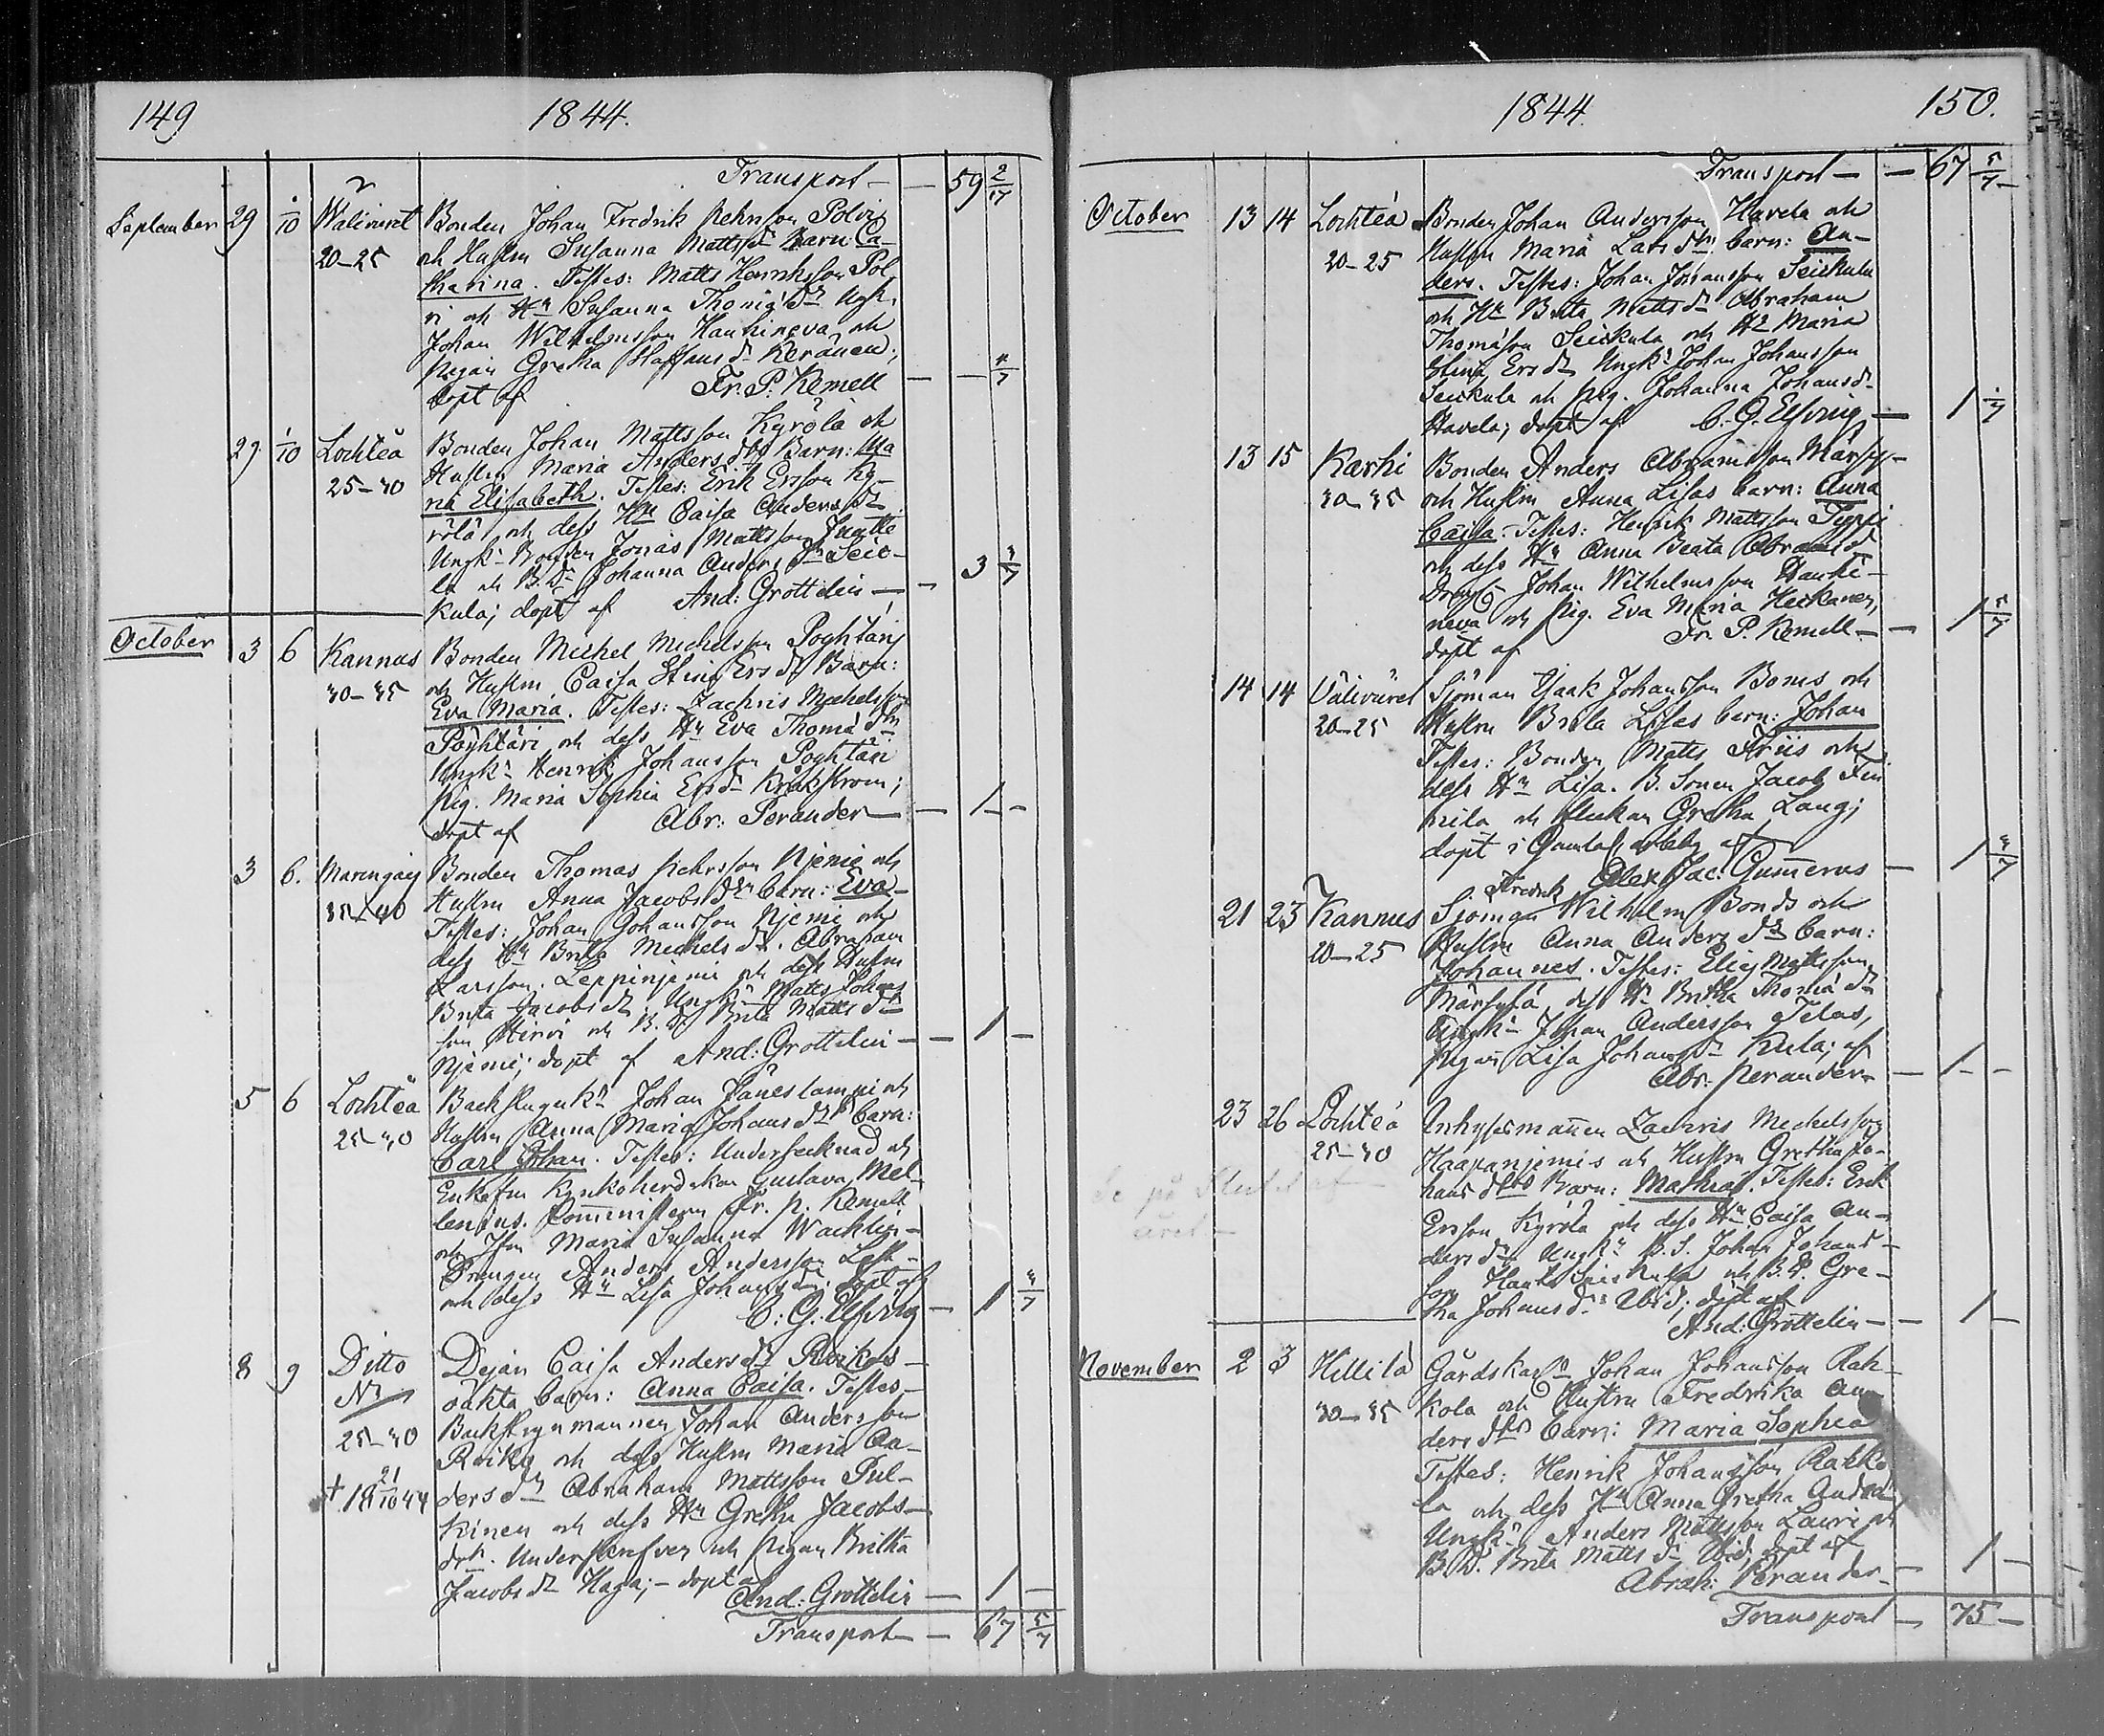 149
1844.
Transport — — 59 2/7
September 29 1/10 Walivuret Bonden Johan Fredrik Pehrsson Polvis
20–25 och Hustru Susanna Mattsdrs barn: Ca-
tharina. Testes: Matts Henriksson Pol
vi och Hu Susanna Thomædr Ungk.
Johan Wilhelmsson Hauhineva och
Pigan Gretha Staffansdr Keränen;
döpt af Fr. P. Kemell — —
29 1/10 Lochteå Bonden Johan Mattsson Kyrölä och
25–30 Hustru Maria Andersdrs Barn: Ma
ria Elisabeth. Testes: Erik Ersson Ky-
rölä och dess Hu Caisa Andersdr
Ungk. Bonden Jonas Mattsson
la och B.Dr Johanna Andersdr Seic-
kula; döpt af And: Grottelin — — 3 3/7
October 3 6 Kannus Bonden Michel Michelsson Poyhtäris
30–35 och Hustru Caisa Stina Ersdrs Barn:
Eva Maria. Testes: Zachris Michelsson
Pöyhtäri och dess Hu Eva Thomædr
Ungk. Henrik Johansson Poyhtäri
Pig. Maria Sophia Ersdr Kråkström;
döpt af Abr: Perander — — 1 –
3 6. Marinkainen Bonden Thomas Pehrsson Njemi och
35–40 Hustru Anna Jacobsdrs barn: Eva –
Testes: Johan Johansson Njemi och
dess Hu Brita Michelsdr. Abraham
Larsson Leppinjemi och dess Hustru
Brita Jacobsdr, Ungk. Matts Johans
son Hirvi och B.D. Brita Mattsdr
Njemi; döpt af And: Grottelin — — 1 –
5 6 Lochteå Backstuguk. Johan Jäneslampi och
25–30 Hustru Anna Maria Johansdrs barn:
Carl Johan. Testes: Undertecknad och
Enkefru Kyrkoherdskan Gustava Mel
lenius. Comministern Fr. P. Kemell
och Fru Maria Susanna Wachlin –
Drengen Anders Andersson
och dess Hu Lisa Johansdr: döpt af
C: G: Elfving — 1 3/7
8 9 Ditto Dejan Caisa Andersdr Roikos
25–30 oäkta barn: Anna Caisa. Testes –
Backstugumannen Johan Andersson
Roiko och dess Hustru Maria An-
† 18 21/10 44 dersdr Abraham Mattsson Pul-
kinen och dess Hu Gretha Jacobs-
dr. Undersk. och Pigan Britha
Jacobsdr Haga; – döpt af
And: Grottelin — 1 –
Transport — 67 5/7
1844
150.
Transport — — 67 5/7
October 13 14 Lochteå Bonden Johan Andersson Havela och
20–25 Hustru Maria Larsdrs barn: An-
ders. Testes: Johan Johansson Seickula
och Hu Brita Mattsdr Abraham
Thomasson Seickula och Hu Maria
Stina Ersdr Ungk. Johan Johansson
Seickula och Pig. Johanna Johansdr
Havela; döpt af C. G. Elfving — 1
13 15 Karhi Bonden Anders Abramsson Märsylä
30–35 och Hustru Anna Lisas barn: Anna
Caisa. Testes: Henrik Mattsson Typpi
och dess Hu Anna Beata Abramsdr
Dreng Johan Wilhelmsson Hauhi-
neva och Pig. Eva Maria Heikanen,
döpt af Fr. P. Kemell — — 1 5/7
14 14 Wälivüret Sjöman Isaak Johansson Boms och
20–25 Hustru Brita Lisas barn: Johan
Testes: Bonden Matts Friis och
dess Hu Lisa. B. Sonen Jacob
och flickan Gretha Lang;
döpt i Gamlakarleby af
Alex. Jac. Gummerus — 1 3/7
21 23 Kannus Sjöman Fredrik Wilhelm Bonds och
20–25 Hustru Anna Andersdrs barn:
Johannes. Testes: Elias Mattsson
Märsylä, dess Hu Britha Thomædr
Ungk. Johan Andersson
Pigan Lisa Johansdr Kula; af
Abr. Perander — 1 – –
23 26 Lochteå Inhysesmannen Zachris Michelsson
25–30 Haapanjemis och Hustru Gretha Jo-
hansdrs Barn: Mathias. Testes: Erik
Ersson Kyrölä och dess Hu Caisa An-
dersdr Ungk. B.S. Johan Johans-
son Seickula och B.D. Gre-
tha Johansdr Ibid; döpt af
And: Grottelin — — 1 –
November 2 3 Hillilä Gårdskarln Johan Johansson Rah-
30–35 kola och Hustru Fredrika An-
dersdrs barn: Maria Sophia
Testes: Henrik Johansson Rahko
la och dess Hu Anna Gretha Andersdr
Ungk. Anders Mattsson Lauri och
B.D. Brita Mattsdr Ibid, döpt af
Abrah: Perander — 1 –
Transport — 75 –